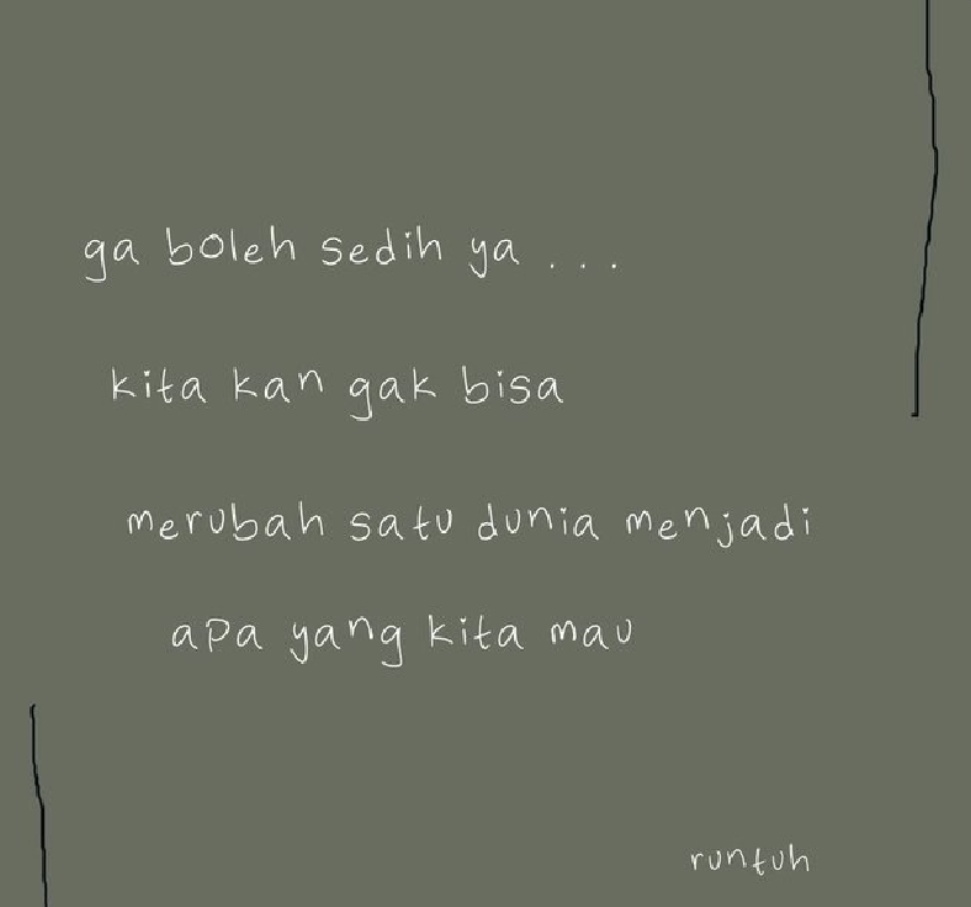 ga boleh sedih ya ...
kita kan gak bisa
merubah satu dunia menjadi
apa yang kita mau
runtuh